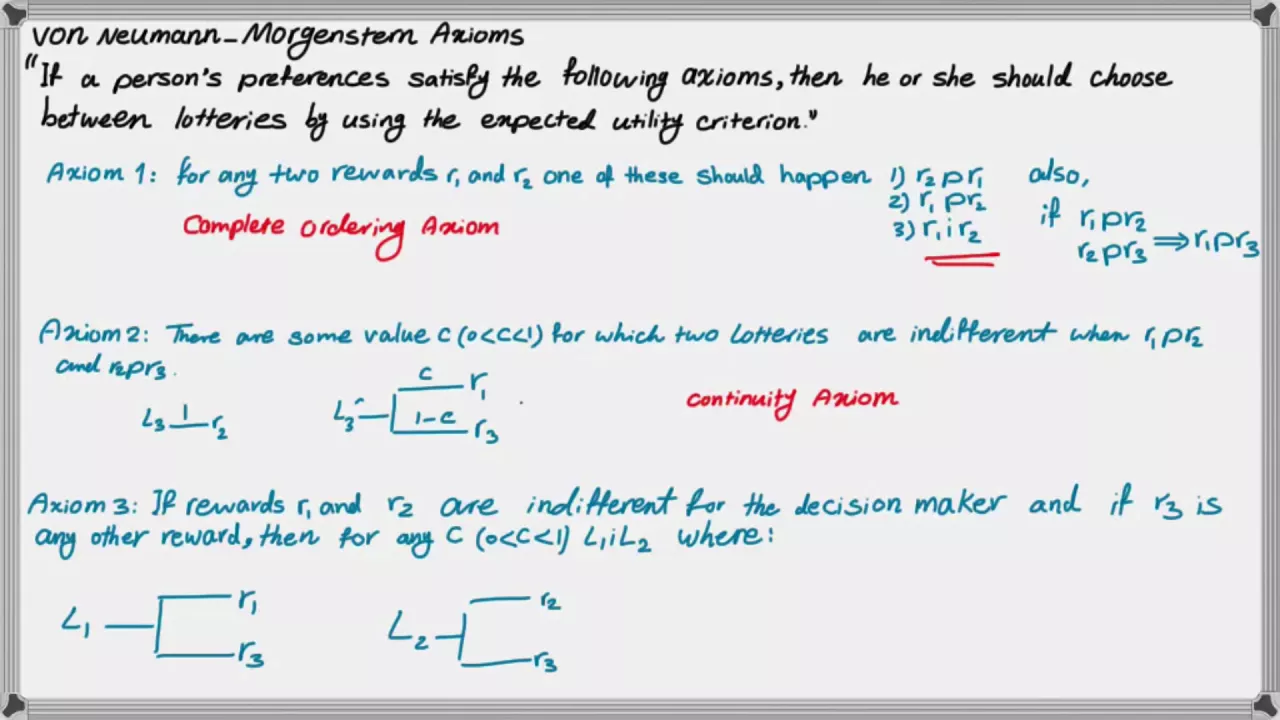 Von Neumann-Morgenstern Axioms
"If a person's preferences satisfy the following axioms, then he or she should choose
between lotteries by using the expected utility criterion."
Axiom 1: for any two rewards r1 and r2 one of these should happen 1) r2pr1 also,
2) r1pr2 if r1pr2
Complete ordering Axiom 3) r1ir2 r2pr3 ⇒ r1pr3
Axiom 2: There are some value c (0<c<1) for which two lotteries are indifferent when r1pr2
and r2pr3.
c r1
L3 1 r2 L3' 1-c r3 continuity Axiom
Axiom 3: If rewards r1 and r2 are indifferent for the decision maker and if r3 is
any other reward, then for any c (0<c<1) L1iL2 where:
L1 r1 L2 r2
r3 r3